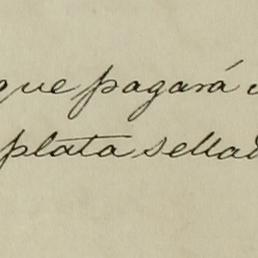 que pagará
plata sellad